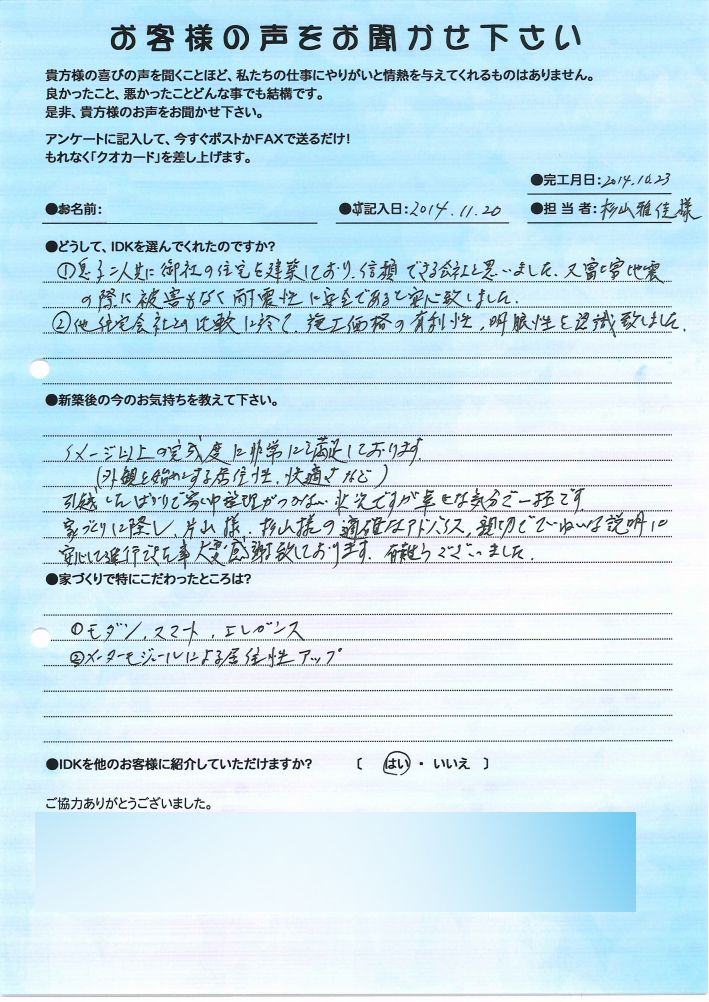 お客様の声をお聞かせ下さい
貴方様の喜びの声を聞くことほど、私たちの仕事にやりがいと情熱を与えてくれるものはありません。
良かったこと、悪かったことどんな事でも結構です。
是非、貴方様のお声をお聞かせ下さい。
アンケートに記入して、今すぐポストかFAXで送るだけ!
もれなく「クオカード」を差し上げます。
●完工月日:2014.10.23
●お名前: ●ご記入日:2014.11.20 ●担当者:杉山雅佳様
●どうして、IDKを選んでくれたのですか?
①息子二人共に御社の住宅を建築しており、信頼できる会社と思いました。又富士宮地震
の際に被害もなく耐震性に安全であると安心致しました。
②他住宅会社との比較に於て、施工価格の有利性、明眼性を認識致しました。
●新築後の今のお気持ちを教えて下さい。
イメージ以上の完成度に非常に満足しております
(外観を始めとする居住性、快適さなど)
引越したばかりで家中整理がつかない状況ですが幸せな気分で一杯です
家づくりに際し、片山様、杉山様の適確なアドバイス、親切でていねいな説明に
安心して進行できた事大変感謝致しております。有難うございました。
●家づくりで特にこだわったところは?
①モダン、スマート、エレガンス
②メーターモジュールによる居住性アップ
●IDKを他のお客様に紹介していただけますか? 〔 はい ・ いいえ 〕
ご協力ありがとうございました。